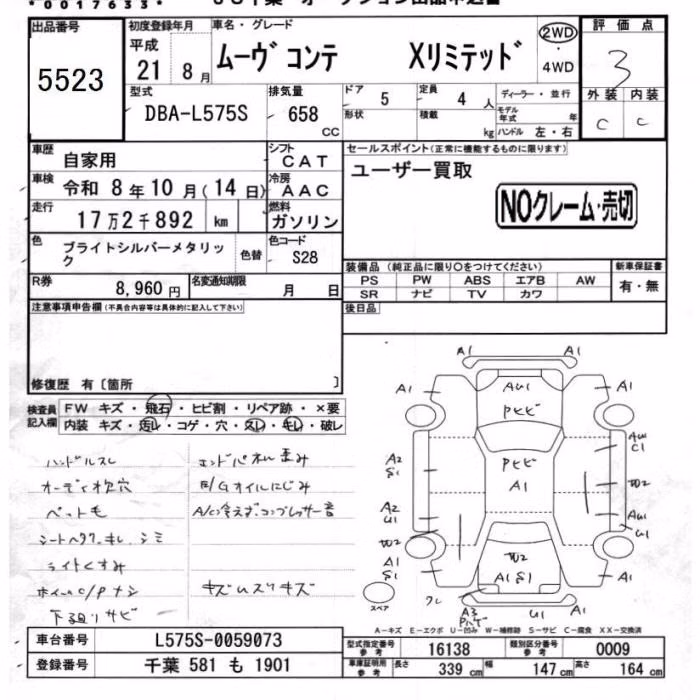 *0017633*
出品番号
5523
初度登録年月
平成
21年 8月
車名・グレード
ムーヴ コンテ Xリミテッド
2WD
・
4WD
評価点
3
外装 内装
C C
型式
DBA-L575S
排気量
658 CC
ドア
5
形状
定員
4 人
積載
kg
ディーラー・並行
モデル年式 年
ハンドル 左・右
車歴
自家用
シフト
CAT
車検 令和 8年 10月(14日)
冷房
AAC
走行
17万2千892 km
燃料
ガソリン
色
ブライトシルバーメタリック
色替
色コード
S28
R券
8,960円
名変通知期限
月 日
セールスポイント(正常に機能するものに限ります)
ユーザー買取
NOクレーム・売切
装備品(純正品に限り○をつけてください)
PS PW ABS エアB AW
SR ナビ TV カワ
新車保証書
有・無
後日品
注意事項申告欄(不具合内容等は具体的に記入して下さい)
修復歴 有〔箇所 〕
検査員記入欄
FW キズ・飛石・ヒビ割・リペア跡・×要
内装 キズ・汚レ・コゲ・穴・スレ・キレ・破レ
ハンドルスレ
エンドパネル歪み
オーディオ枕穴
E/Gオイルにじみ
ペット毛
A/C冷えず.コンプレッサー音
シートヘタリ.キレ.シミ
ライトくすみ
ホイールC/Pナシ
キズ.ムスリキズ
下廻りサビ
A1 A1
A1 AU1 A1
Pヒビ
A2
S1
Pヒビ
A1
AW
C1
W2
A2
U1
AU1
U1
W2
A1
S1
W2
A1 S1
スペア
クレ
A3
Pハゲ
U1 A1
A-キズ E-エクボ U-凹み W-補修跡 S-サビ C-腐食 XX-交換済
車台番号
L575S-0059073
登録番号
千葉 581 も 1901
型式指定番号
参考
16138
類別区分番号
参考
0009
車庫証明用
参考
長さ
339 cm
幅
147 cm
高さ
164 cm